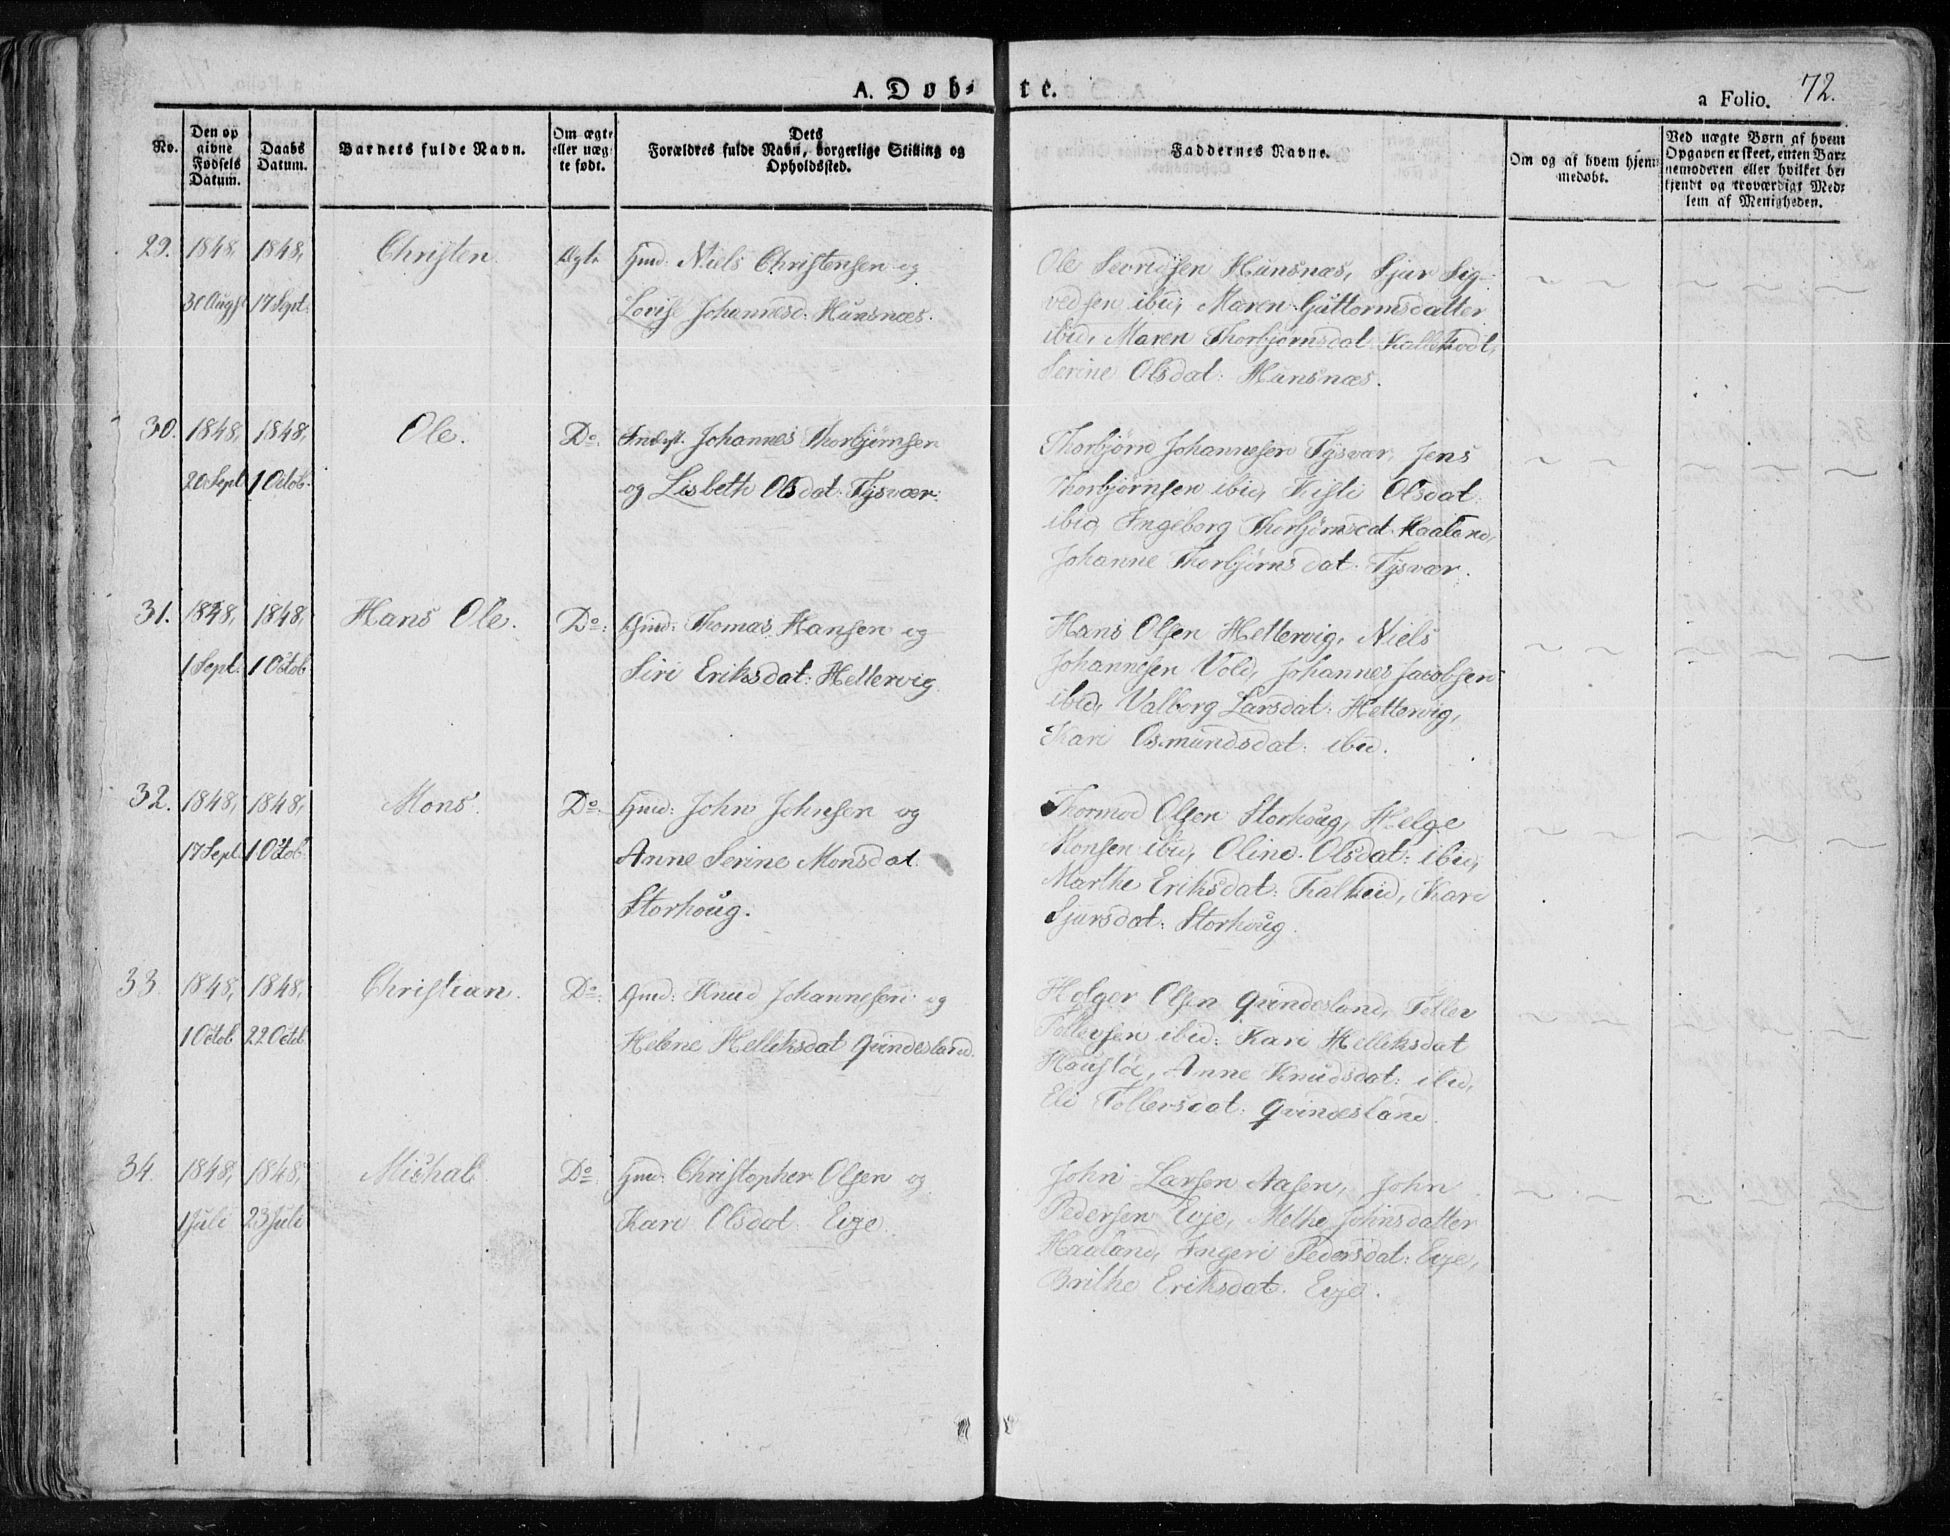 A. Døb- te.
a Folio. 72.
No.
Den op
givne
Fødsels
Datum.
Daabs
Datum.
Barnets fulde Navn.
Om ægte
eller uæg
te født.
Dets
Forældres fulde Navn, borgerlige Stilling og
Opholdssted.
Faddernes Navne.
Om og af hvem hjem
medøbt.
Ved uægte Børn af hvem
Opgaven er skeet, enten Bar-
nemoderen eller hvilket be-
kjendt og troværdigt Med-
lem af Menigheden.
29. 1848, 1848, Christen Ægte Gmd: Niels Christensen og
31 Augst 17 Sept: Lovise Johannesd: Hunsnæs.
Ole Sevridsen Hunsnæs, Sjur Sig-
vedsen ibid, Maren Guttormsdatter
ibid, Maren Thorbjørnsdat:
Serine Olsdat: Hunsnæs.
30. 1848, 1848, Ole. Do: Johannes Thorbjørnsen
20 Sept 1 Octob. og Lisbeth Olsdat: Tysvær:
Thorbjørn Johannesen Tysvær, Jens
Thorbjørnsen ibid, Kisti Olsdat:
ibid, Ingeborg Thorbjørnsdat. Haaland,
Johanne Thorbjørnsdat: Tysvær.
31. 1848, 1848, Hans Ole. Do: Gmd: Thomas Hansen og
1 Sept. 1 Octob Siri Eriksdat: Hettervig.
Hans Olsen Hettervig, Niels
Johannesen Vold, Johannes Jacobsen
ibid, Valborg Larsdat: Hettervig,
Kari Osmundsdat: ibid.
32. 1848, 1848, Mons. Do: Gmd: John Johnsen og
17 Sept 1 Octob. Anne Serine Monsdat
Storhoug.
Thormod Olsen Storhoug, Helge
Monsen ibid, Oline Olsdat: ibid,
Marthe Eriksdat: Falkeid, Kari
Sjursdat: Storhoug.
33. 1848, 1848, Christian. Do: Gmd: Knud Johannesen og
1 Octob 22 Octob Helene Helliksdat Qvindesland.
Holger Olsen Qvindesland, Tollev
Tollevsen ibid: Kari Helliksdat
Houstøe, Anne Knudsdat: ibid,
Eli Tollevsdat: Qvindesland.
34. 1848, 1848, Michal. Do: Gmd: Christopher Olsen og
1 Juli 23 Juli Kari Olsdat: Eige.
John Larsen Aasen, John
Pedersen Eige, Methe Johnsdatter
Haaland, Ingeri Pedersdat: Eige,
Brithe Eriksdat. Eige.